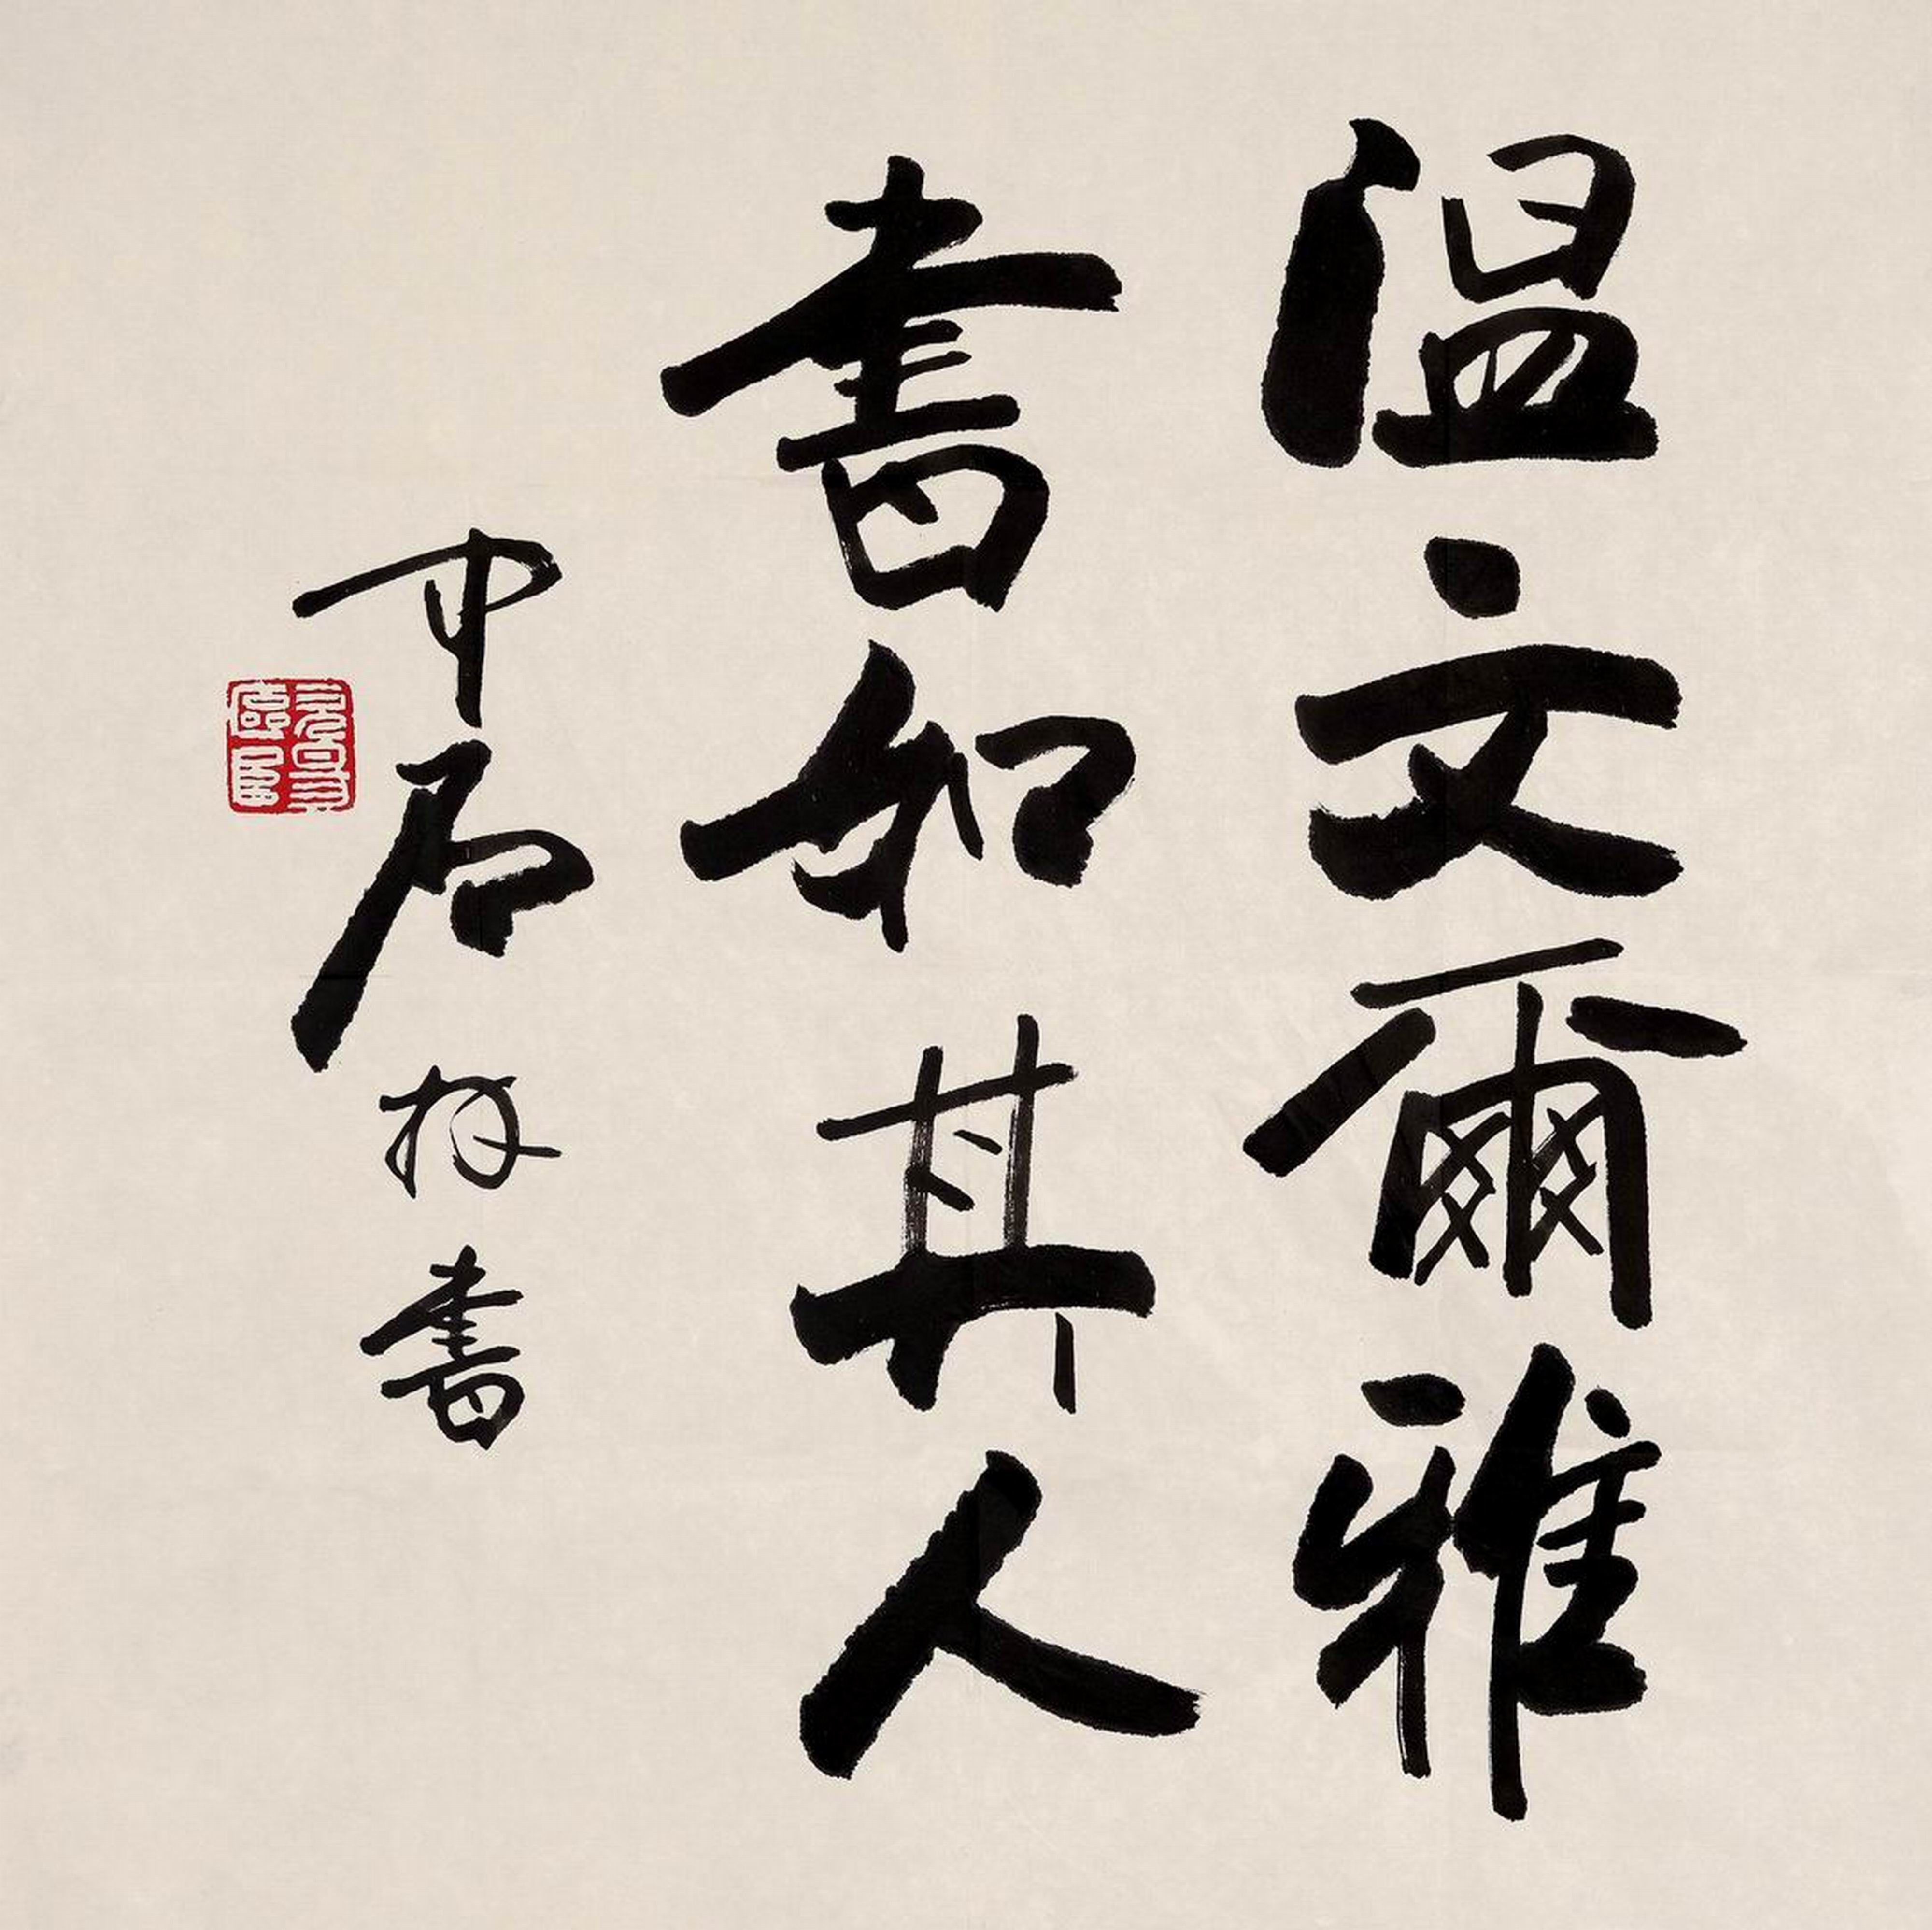 温文爾雅
書如其人
中石拜書